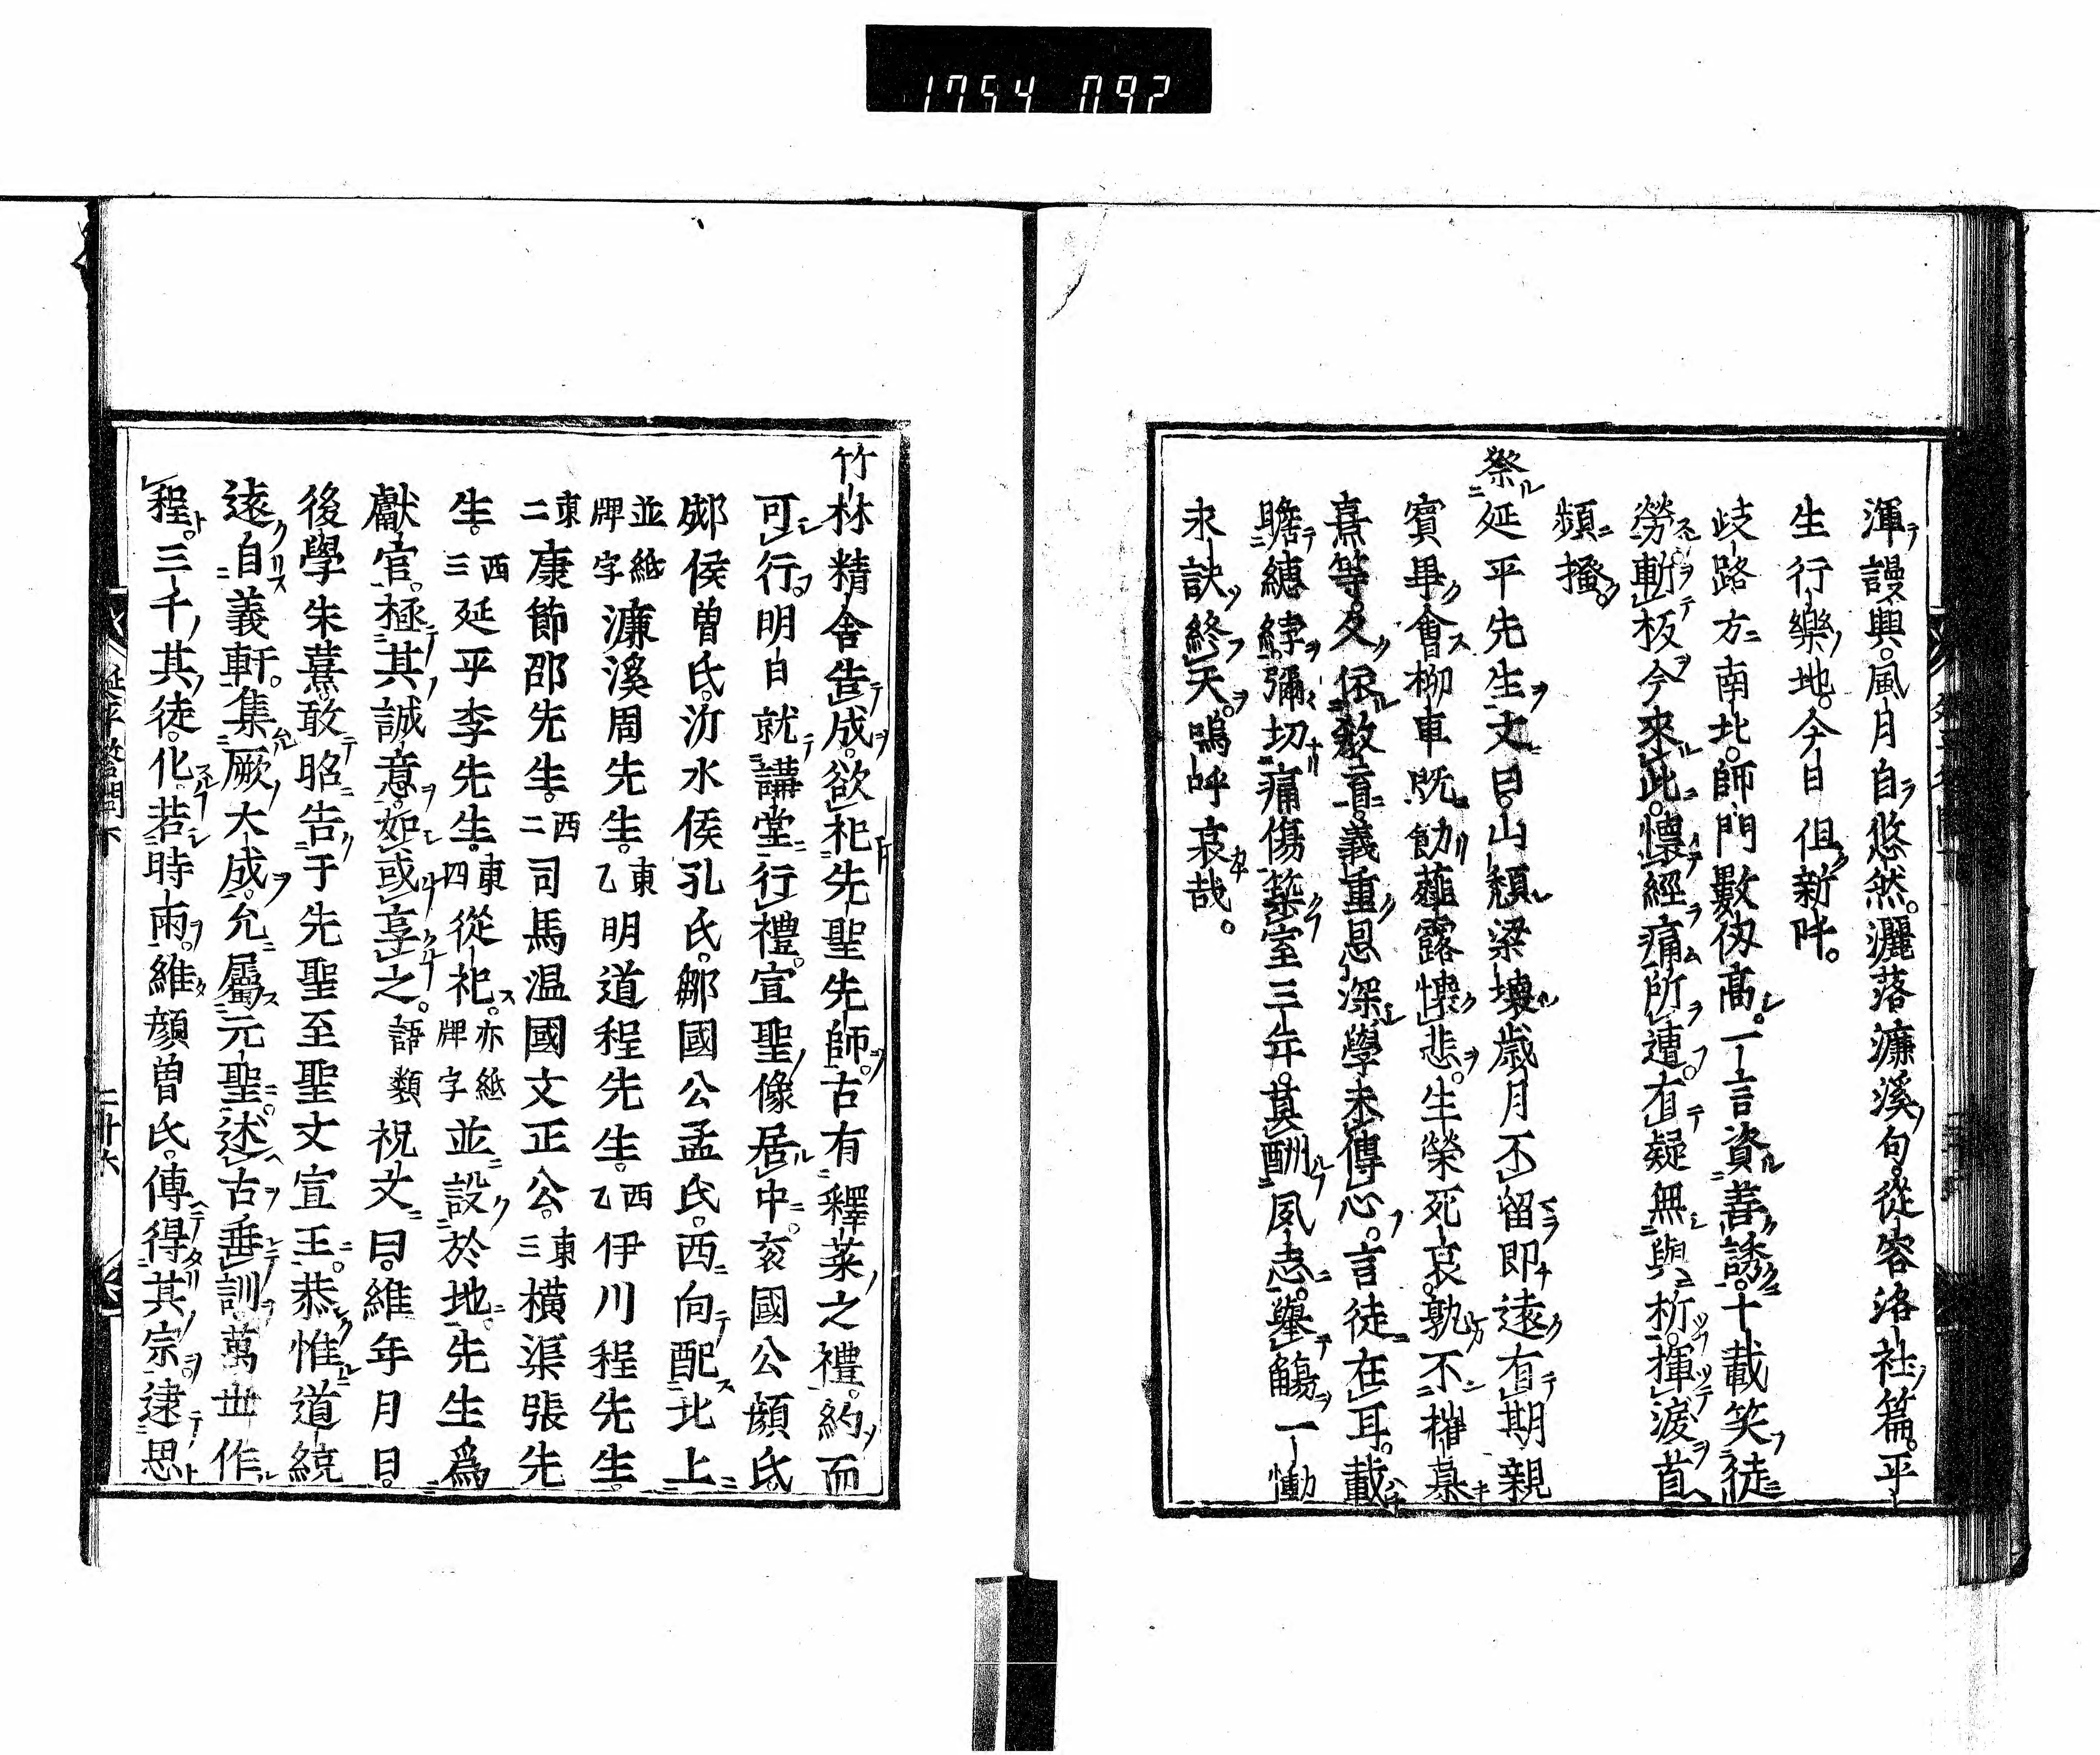 1754 092
渾謾興。風月自悠然。灑落濂溪句。從容洛社篇。平
生行樂地。今日但新阡。
歧路方南北。師門數仭髙。一言資善誘。十載笑徒
勞。斬板今來此。懷經痛所遭。有疑無與析。揮淚首
頻搔。
祭延平先生文曰。山頹梁壞歳月不留即遠有期親
賓畢會柳車既飭薤露懐悲。生榮死哀。孰不摧慕
熹等。久依敎育。義重恩深學未傳心。言徒在耳。載
瞻繐緯彌切痛傷築室三年。莫酬夙志。擧觴一慟
永訣終天。嗚呼哀哉。
竹林精舍告成。欲祀先聖先師。古有釋菜之禮。約而
可行。明日就講堂行禮。宣聖像居中。兖國公顔氏
郕侯曽氏。沂水侯孔氏。鄒國公孟氏。西向配北上
並紙牌字濂溪周先生。東乙明道程先生。西乙伊川程先生。
東二康節邵先生。西二司馬温國文正公。東三橫渠張先
生。西三延平李先生。東四從祀。亦紙牌字並設於地。先生爲
獻官。極其誠意。如或享之。語類祝文曰。維年月日。
後學朱熹敢昭告于先聖至聖文宣王。恭惟道統
遠自羲軒。集厥大成。允屬元聖。述古垂訓。萬世作
程。三千其徒。化若時雨。維顔曽氏。傳得其宗。逮思
延平答問下
二十六